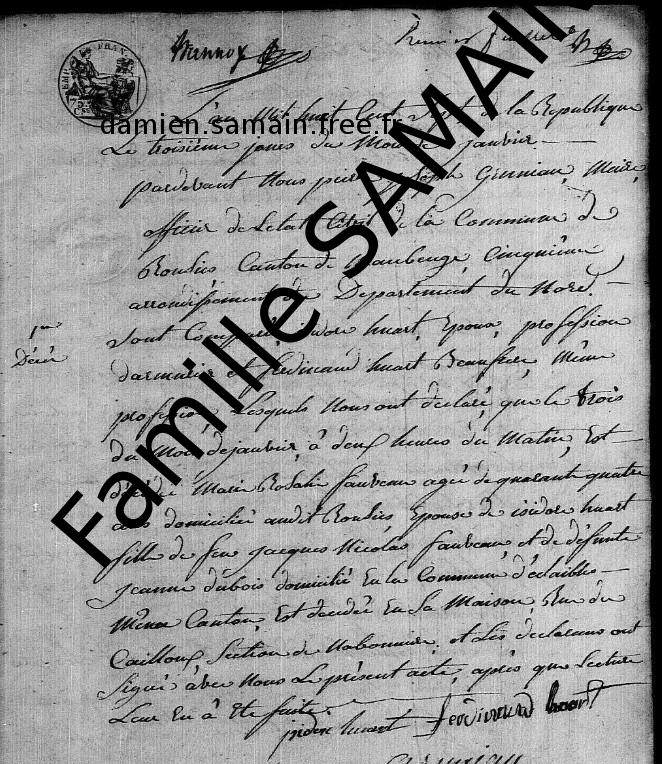 Premier
damien.samain.free.fr
Famille SAMAIN
L'an Mil huit Cent Sept de la Republique
Le troisième jour du Mois de janvier
pardevant Nous pierre joseph Maire
officier de Letat Civil de la Commune de
Rousies Canton de Maubeuge Cinquième
arrondissement du Departement du Nord
sont Comparu isidore huart Epoux, profession
darmurier et ferdinand huart Beaufrere, Même
profession, Lesquels Nous ont déclaré, que le trois
du Mois de janvier, à deux heures du Matin, Est
décédé Marie Rosalie fauveau agé de quarante quatre
ans domicilié audit Rousies, Epouse de isidore huart
fille de feu jacques Nicolas fauveau et de défunte
jeanne dubois domicilié En la Commune d'éclaibles
Même Canton, Est décédée En Sa Maison, Rue du
Cailloux, Section de et Les declarans ont
Signé avec Nous Le présent acte, après que lecture
Leur En à Eté faite.
huart ferdinand huart
1er
Décès